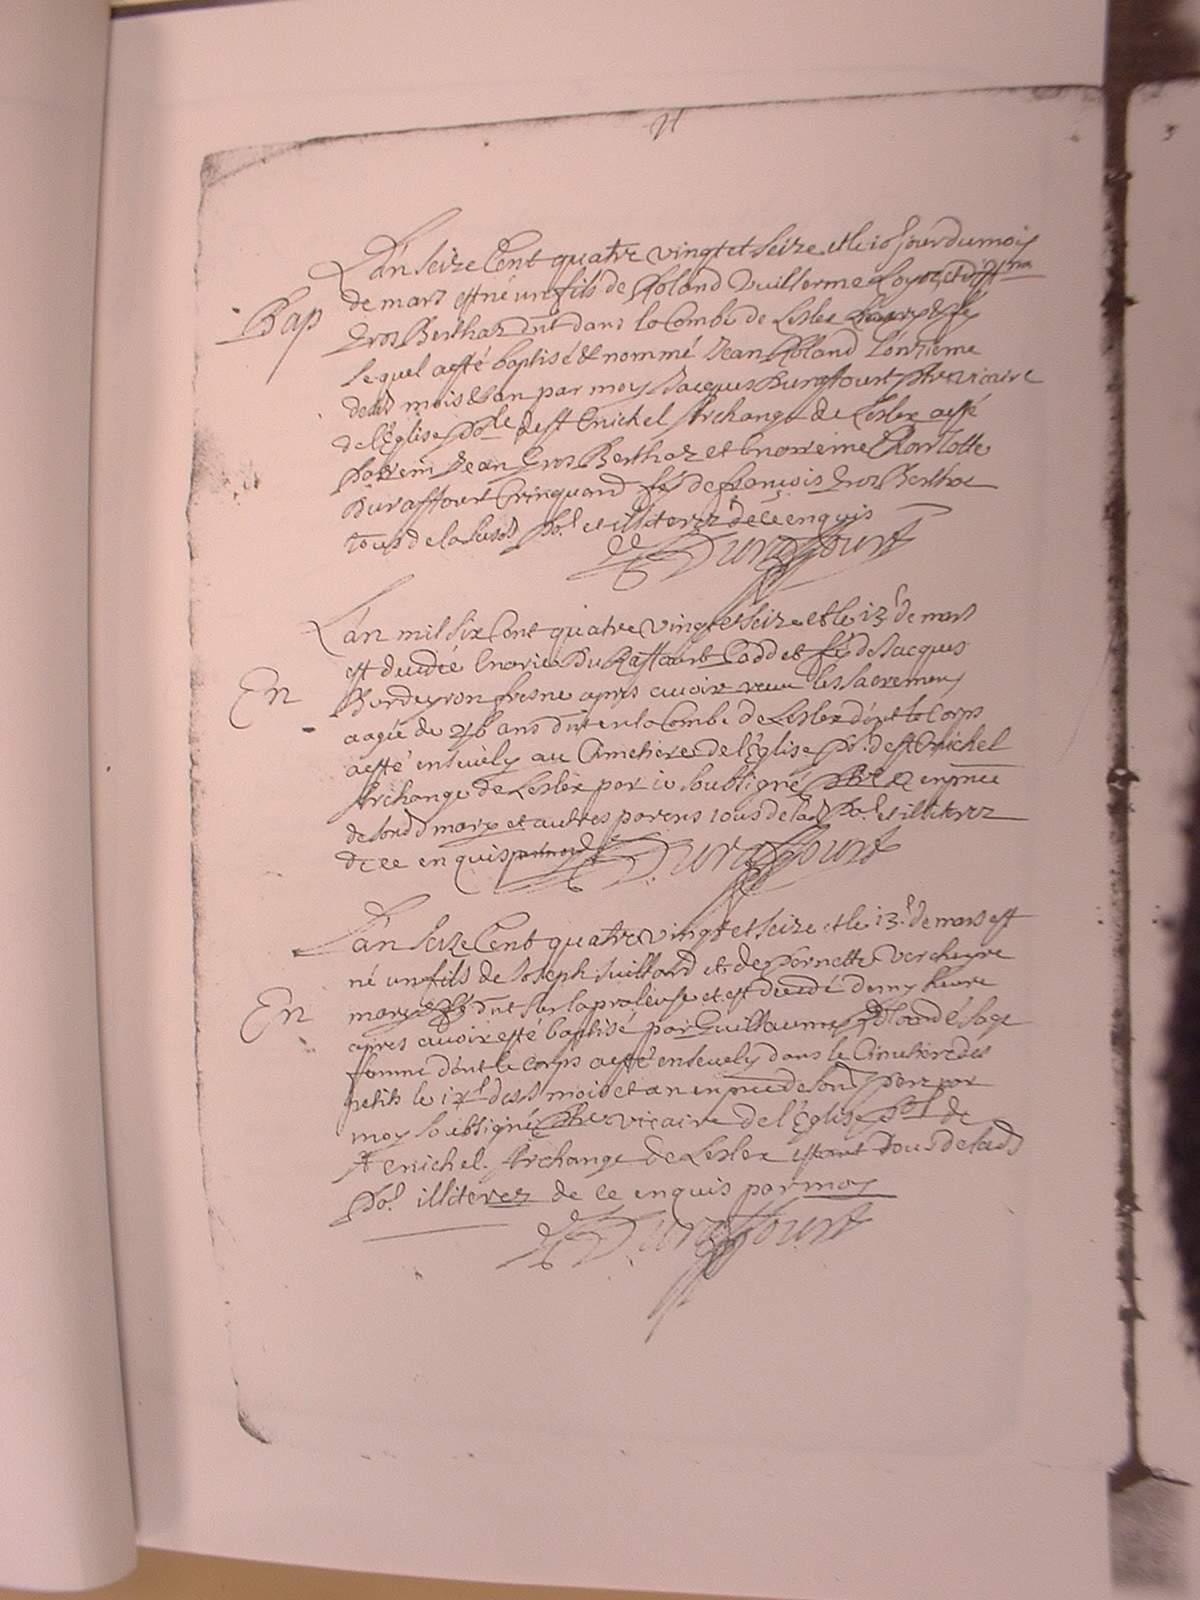 L'an seize Cent quatre vingt et seize et le 10e jour du mois
de mars est né un fils de Roland Vuillerme
Bap
Gros Berthaz dnt dans la Combe de Leslex
le quel a esté baptisé & nommé Jean Roland l'onzieme
desd mois & an par moy Jacques Duraffourt Pbre vicaire
de l'Eglise de st Michel Archange de Leslex a esté
parrein Jean Gros Berthaz et marreine Charlotte
Duraffourt Crinquand fe de François Gros Berthaz
tous de la susd Pal et illiterez de ce enquis
Duraffourt
L'an mil six Cent quatre vingt et seize et le 13e de mars
est decedée Marie Duraffourt Cadd et fe de Jacques
En
aprés avoir receu les sacremens
aagée de ans dnt en la Combe de Leslex dont le Corps
a esté ensevely au Cimetiere de l'Eglise Pal de st Michel
Archange de Leslex par je soubsigné Pbre en pnce
de sond mary et autres parens tous de lad Pal et illiterez
de ce enquis par moy
Duraffourt
L'an seize Cent quatre vingt et seize et le 13e de mars est
né un fils de Joseph Juilliard et de Pernette Vercheyre
En
mariés dnt sur la praleuse et est decedé demy heure
apres avoir esté baptisé par Guillauma sage
femme dont le corps a esté ensevely dans le Cimetiere des
petits le desd mois et an en pnce de sond pere par
moy soubsigné Pbre vicaire de l'Eglise Pal de
st Michel Archange de Leslex estant tous de lad
Pal illiterez de ce enquis par moy
Duraffourt